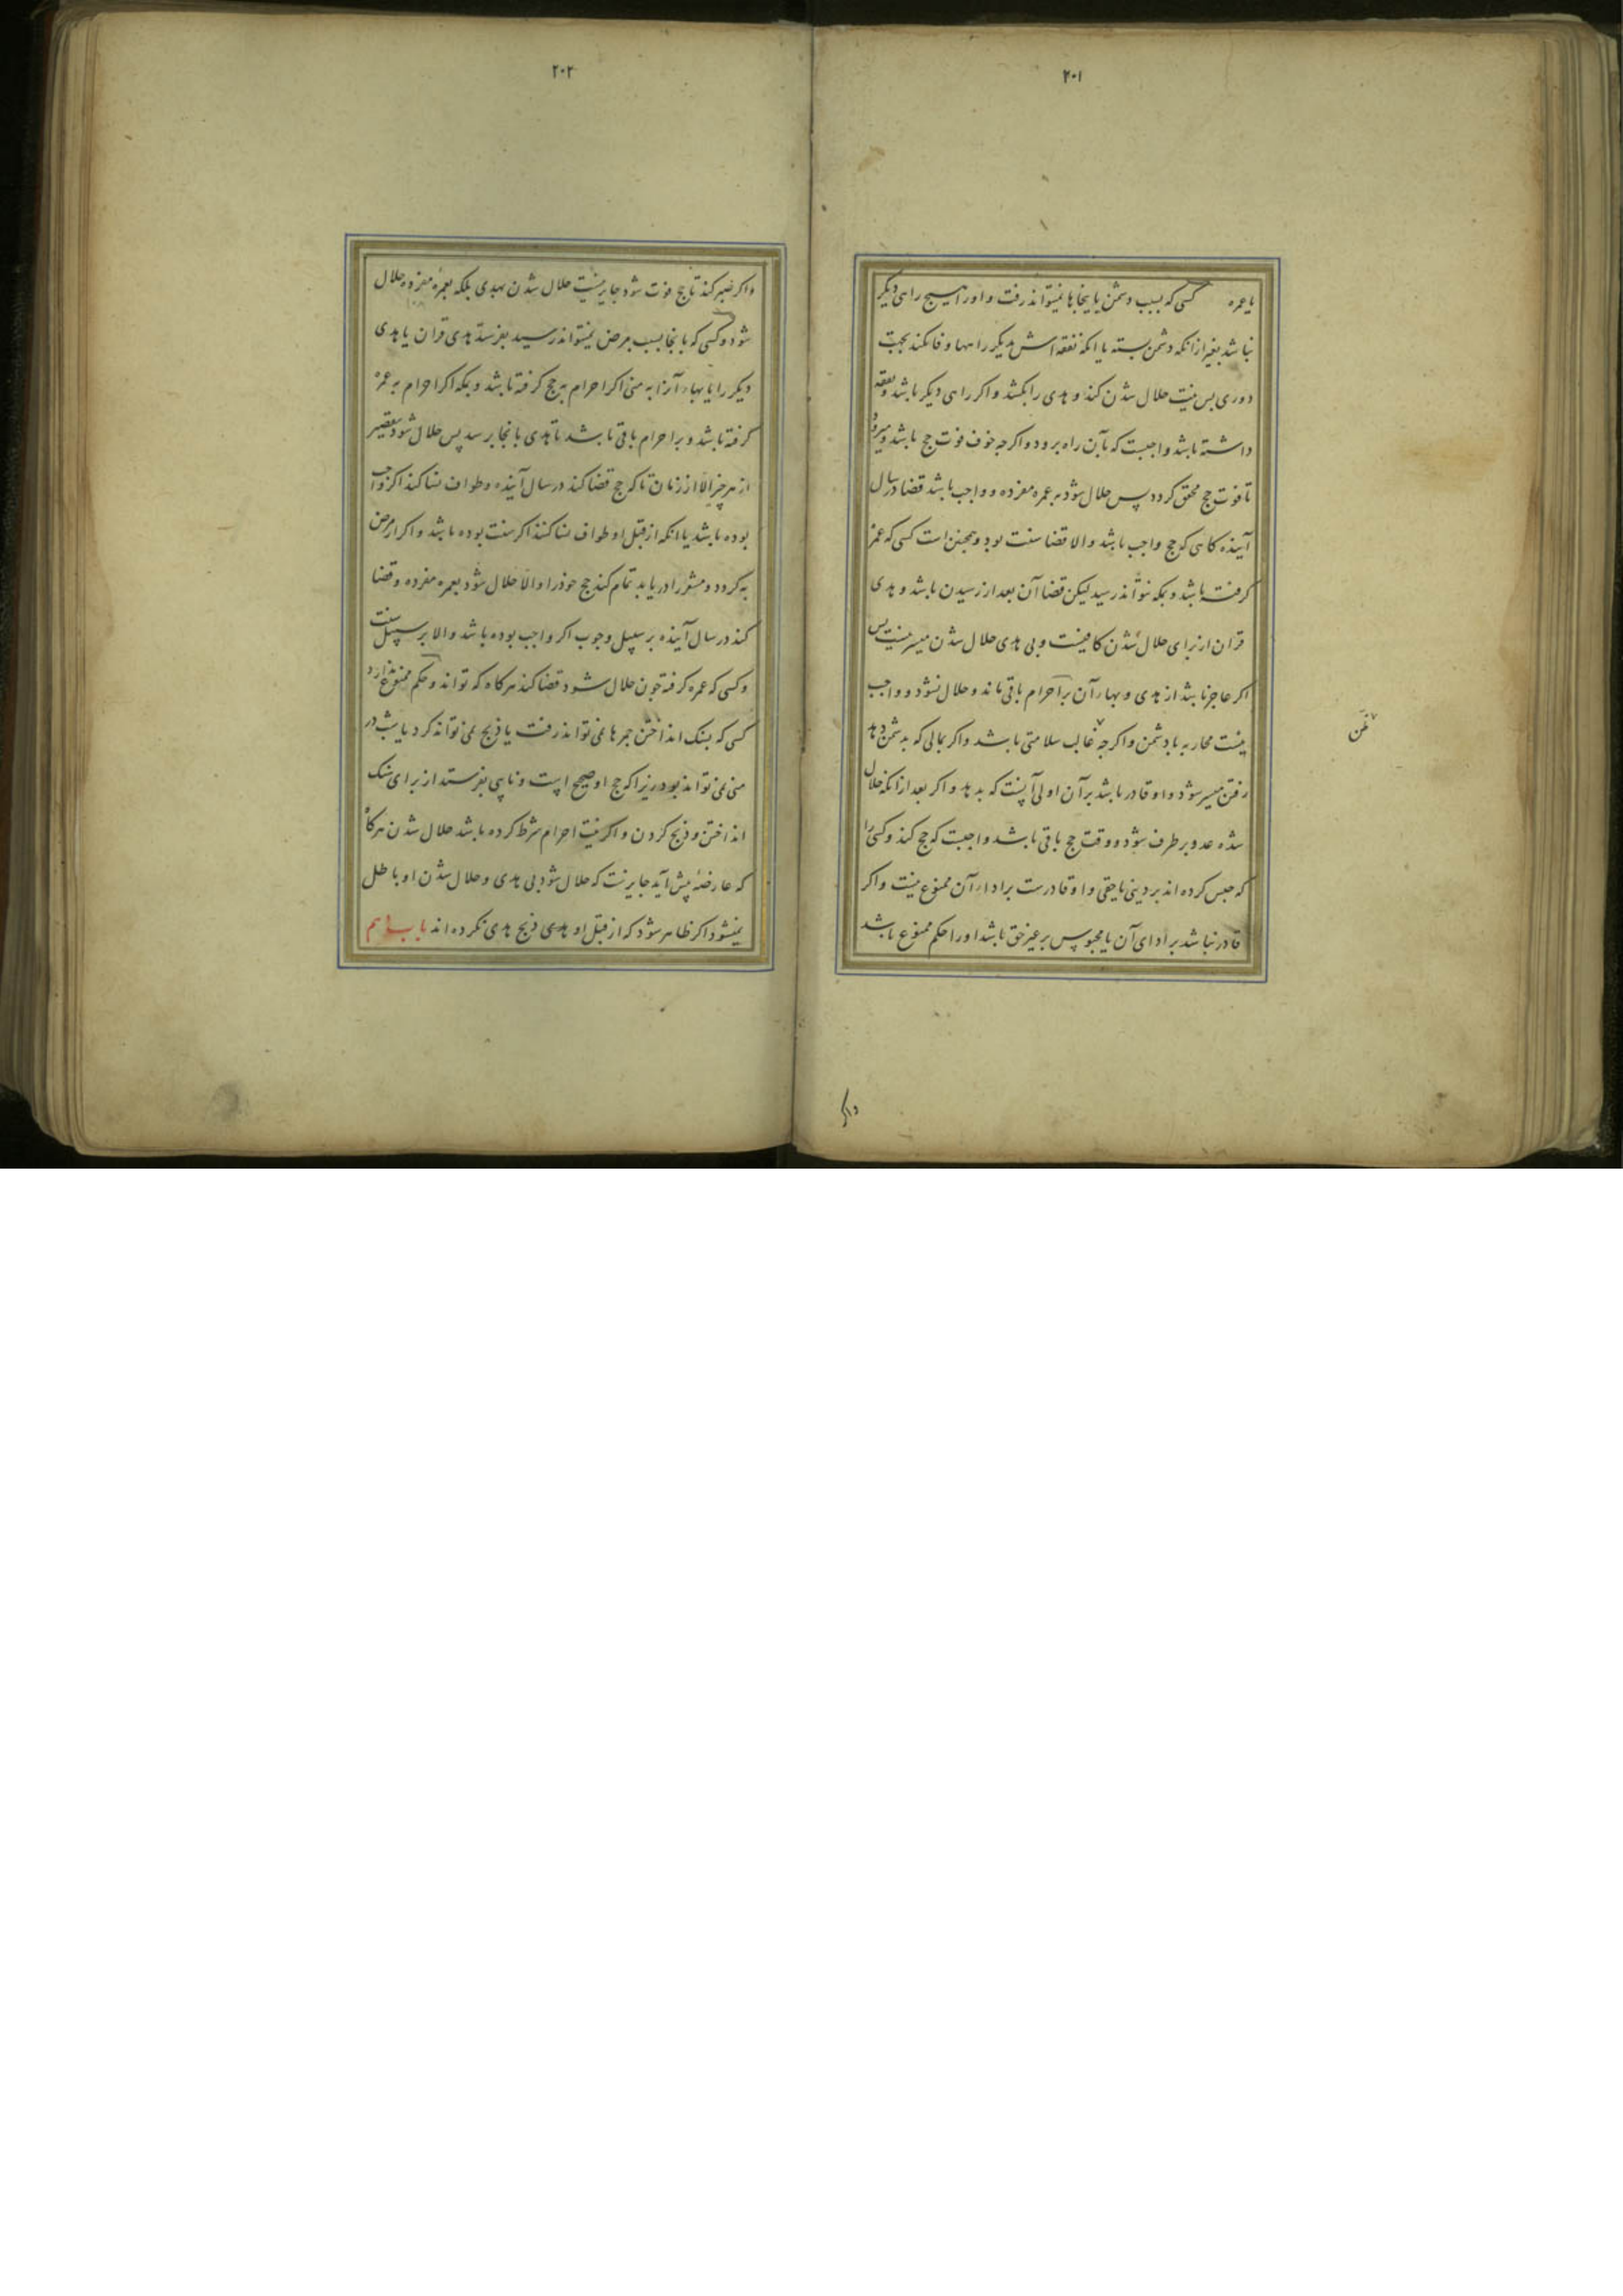 ۲۰۱
یا عمره کسی که بسبب دشمن باینجاها نمیتواند رفت و اورا هیچ راهی دیگر
نباشد بغیر از انکه دشمن بسته یا انکه نفقه اش بدیگر راهها وفا نکند بجهت
دوری پس نیت حلال شدن کند و هدی را بکشد و اکر راهی دیکر باشد و نفقه
داشته باشد واجبست که بآن راه برود و اکرجه خوف فوت حج باشد و میرود
تا فوت حج محقق کردد پس حلال شود به عمره مفرده و واجب باشد قضا در سال
آینده کاهی که حج واجب باشد والا قضا سنت بود و همجنین است کسی که عمره
کرفته باشد و بمکه نتواند رسید لیکن قضا آن بعد از رسیدن باشد و هدی
قران از برای حلال شدن کافیست و بی هدی حلال شدن میسر نیست پس
اکر عاجز باشد از هدی و بهاء آن بر احرام باقی ماند و حلال نشود و واجب
نیست محاربه با دشمن و اکرجه غالب سلامتی باشد و اکر بمالی که بدشمن دهد
رفتن میسر شود و او قادر باشد بر آن اولی آنست که بدهد و اکر بعد از انکه حلال
شده عدو بر طرف شود و وقت حج باقی باشد واجبست که حج کند و کسی را
که حبس کرده اند بر دینی یا حقی و او قادرست بر اداء آن ممنوع نیست و اکر
قادر نباشد بر ادای آن یا محبوس بر غیر حق باشد اورا حکم ممنوع باشد
ظن
واکر
۲۰۲
واکر صبر کند تا حج فوت شود جایز نیست حلال شدن بهدی بلکه بعمره مفرده حلال
شود و کسی که بانجا بسبب مرض نمیتواند رسید بفرستد هدی قران یا هدی
دیکر را یا بهاء آنرا به منی اکر احرام به حج کرفته باشد و بمکه اکر احرام به عمره
کرفته باشد و بر احرام باقی باشد تا هدی بانجا برسد پس حلال شود بتقصیر
از هر چیز الا از زنان تا که حج قضا کند در سال آینده و طواف نسا کند اکر واجب
بوده باشد یا انکه از قبل او طواف نسا کنند اکر سنت بوده باشد و اکر از مرض
به کردد و مشعر را دریابد تمام کند حج خود را والا حلال شود بعمره مفرده و قضا
کند در سال آینده بر سبیل وجوب اکر واجب بوده باشد والا بر سبیل سنت
و کسی که عمره کرفته چون حلال شود قضا کند هرکاه که تواند و حکم ممنوع ندارد
کسی که بسنک انداختن جمرها نمی تواند رفت یا ذبح نمی تواند کرد یا بشب در
منی نمی تواند بود زیرا که حج او صحیح است و نایبی بفرستد از برای سنک
انداختن و ذبح کردن و اکر نیت احرام شرط کرده باشد حلال شدن هرکاه
که عارضه پیش آید جایزست که حلال شود بی هدی و حلال شدن او باطل
نمیشود اکر ظاهر شود که از قبل او هدی ذبح هدی نکرده اند باب